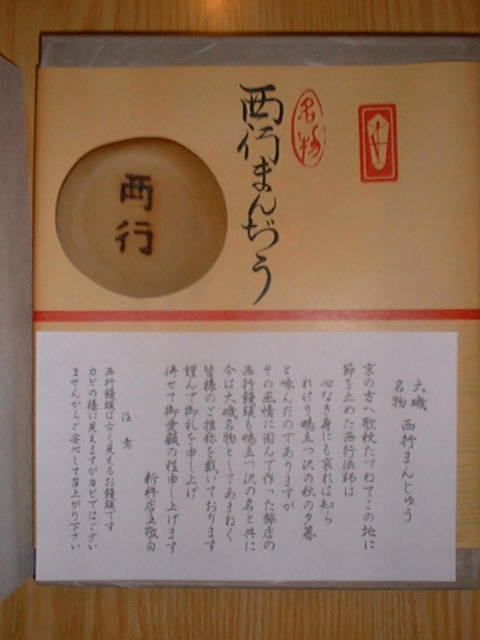 名物
西行まんぢう
西行
大磯
名物 西行まんじゅう
京の方へ歌枕たづねてこの地に
節を止めた西行法師は
心なき身にも哀れは知ら
れけり鴫立つ沢の秋の夕暮
と咏んだのでありますが
その風情に因んで作った弊店の
西行饅頭も鴫立つ沢の名と共に
今は大磯名物としてあまねく
皆様のご推称を戴いております
謹んで御礼を申し上げ
併せて御愛顧の程申し上げます
新杵店主敬白
注意
西行饅頭は古く見えるお饅頭です
カビの様に見えますがカビではござい
ませんからご安心して召上がり下さい